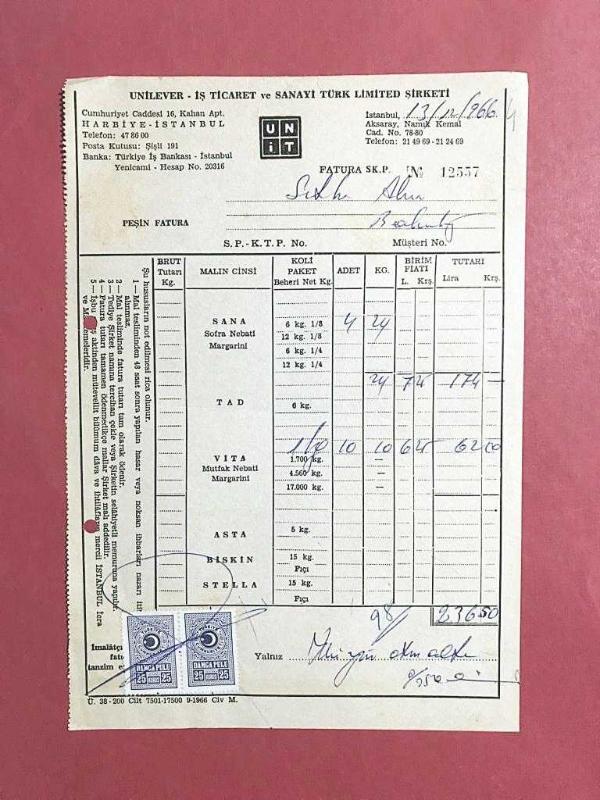 UNILEVER - İŞ TİCARET ve SANAYİ TÜRK LIMITED ŞİRKETİ
Cumhuriyet Caddesi 16, Kahan Apt.
HARBİYE - İSTANBUL
Telefon: 47 86 00
Posta Kutusu: Şişli 191
Banka: Türkiye İş Bankası - İstanbul
Yenicami - Hesap No. 20316
UNİT
İstanbul, 13/12/966
Aksaray, Namık Kemal
Cad. No. 78-80
Telefon: 21 49 69 - 21 24 69
FATURA SK.P. № 12557
PEŞİN FATURA
S.P. - K.T.P. No. Müşteri No.
BRUT Tutarı Kg. MALIN CİNSİ KOLİ PAKET Beheri Net Kg. ADET KG. BİRİM FİATI L. Krş. TUTARI Lira Krş.
SANA 6 kg. 1/8 4 24
Sofra Nebati 12 kg. 1/8
Margarini 6 kg. 1/4
12 kg. 1/4
24 7 25 174 —
TAD 6 kg.
1/0 10 10 6 25 62 50
VİTA 1.700 kg. —
Mutfak Nebati 4.560 kg. —
Margarini 17.000 kg. —
ASTA 5 kg.
BİSKİN 15 kg.
Fıçı
STELLA 15 kg.
Fıçı
98/ 236 50
Şu hususların not edilmesi rica olunur.
1 — Mal tesliminden 48 saat sonra yapılan hasar veya noksan ihbarları nazarı
alınmaz.
2 — Mal tesliminde fatura tutarı tam olarak ödenir.
3 — Tediye Şirket namına tercihan çekle veya Şirketin selâhiyetli memuruna yapılır.
4 — Fatura tutarı tamamen ödenmedikçe mallar Şirket malı addedilir.
5 — İşbu aktinden mütevellit bilûmum dâva ve ihtilâflarda mercii İSTANBUL İcra
ve
İmalâtç
fatu
tanzim e
DAMGA PULU
25 KURUŞ 25
DAMGA PULU
25 KURUŞ 25
Yalnız
Ü. 38 - 200 Cilt 7501-17500 9-1966 Civ M.